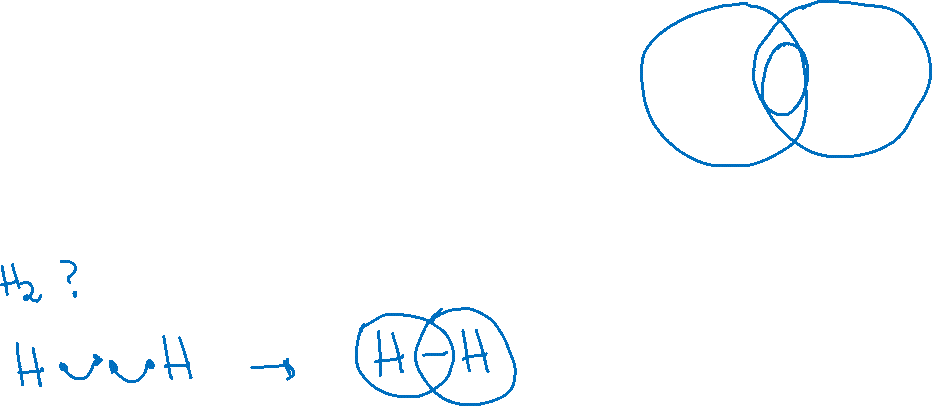 H₂ ?
H H → H − H